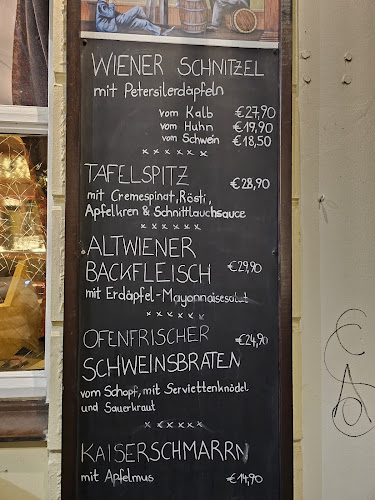 WIENER SCHNITZEL
mit Petersilerdäpfeln
vom Kalb €27,90
vom Huhn €19,90
vom Schwein €18,50
x x x x x x
TAFELSPITZ €28,90
mit Cremespinat, Rösti,
Apfelkren & Schnittlauchsauce
x x x x x x
ALTWIENER
BACKFLEISCH €29,90
mit Erdäpfel-Mayonnaisesalat
x x x x x x
OFENFRISCHER €24,90
SCHWEINSBRATEN
vom Schopf, mit Serviettenknödel
und Sauerkraut
x x x x x x
KAISERSCHMARRN
mit Apfelmus €14,90